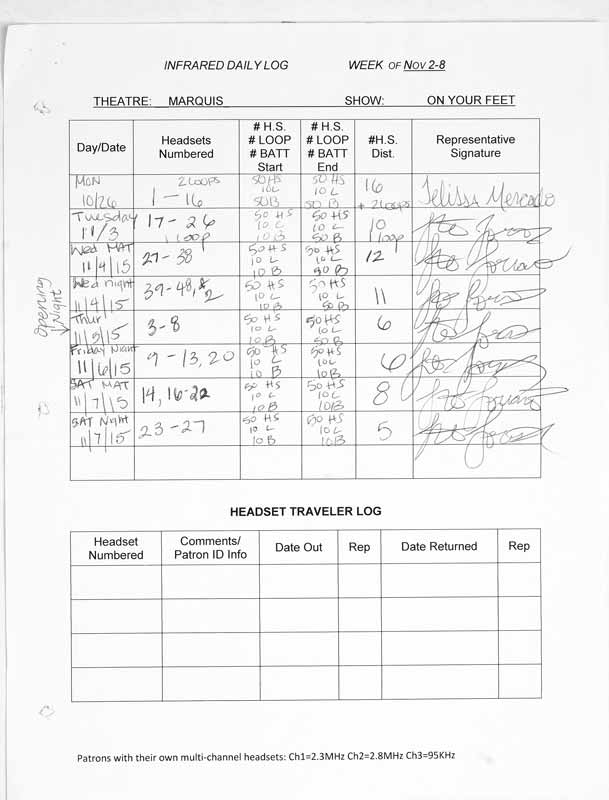 INFRARED DAILY LOG WEEK OF NOV 2-8
THEATRE: MARQUIS SHOW: ON YOUR FEET
Day/Date Headsets Numbered # H.S. # LOOP # BATT Start # H.S. # LOOP # BATT End #H.S. Dist. Representative Signature
MON 10/26 2 LOOPS 1 - 16 50 HS 10 L 50 B 50 HS 10 L 50 B 16 + 2 loops Jelissa Mercado
Tuesday 11/3 17 - 26 1 loop 50 HS 10 L 10 B 50 HS 10 L 50 B 10 1 loop
Wed MAT 11/4/15 27 - 38 50 HS 10 L 10 B 50 HS 10 L 50 B 12
Wed night 11/4/15 39-48, 2 50 HS 10 L 10 B 50 HS 10 L 50 B 11
opening Night
Thur 11/5/15 3 - 8 50 HS 10 L 10 B 50 HS 10 L 50 B 6
Friday Night 11/6/15 9 - 13, 20 50 HS 10 L 10 B 50 HS 10 L 10 B 6
SAT MAT 11/7/15 14, 16-22 50 HS 10 L 10 B 50 HS 10 L 10 B 8
SAT Night 11/7/15 23 - 27 50 HS 10 L 10 B 50 HS 10 L 10 B 5
HEADSET TRAVELER LOG
Headset Numbered Comments/ Patron ID Info Date Out Rep Date Returned Rep
Patrons with their own multi-channel headsets: Ch1=2.3MHz Ch2=2.8MHz Ch3=95KHz